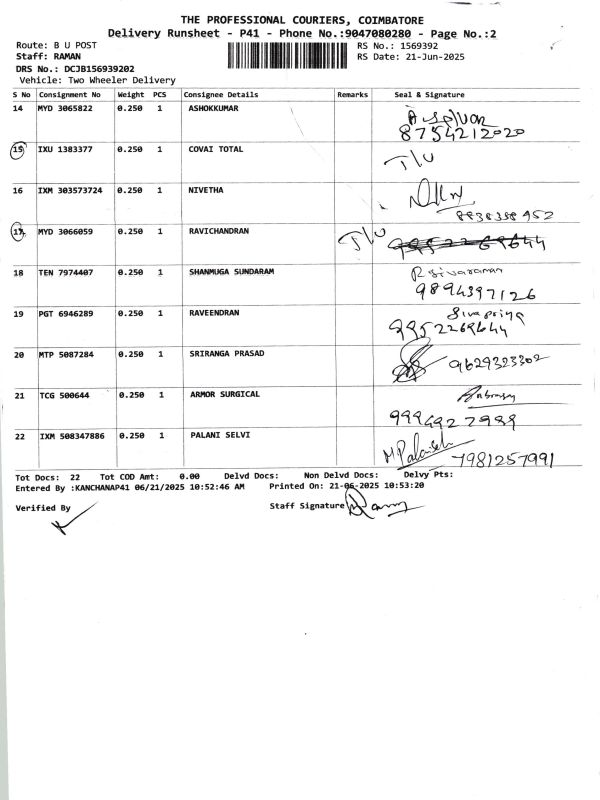 THE PROFESSIONAL COURIERS, COIMBATORE
Delivery Runsheet - P41 - Phone No.:9047080280 - Page No.:2
Route: B U POST RS No.: 1569392
Staff: RAMAN RS Date: 21-Jun-2025
DRS No.: DCJB156939202
Vehicle: Two Wheeler Delivery
S No Consignment No Weight PCS Consignee Details Remarks Seal & Signature
14 MYD 3065822 0.250 1 ASHOKKUMAR
8754212020
15 IXU 1383377 0.250 1 COVAI TOTAL
T/U
16 IXM 303573724 0.250 1 NIVETHA
8838338952
17 MYD 3066059 0.250 1 RAVICHANDRAN T/U 9952269644
18 TEN 7974407 0.250 1 SHANMUGA SUNDARAM R Sivaraman
9894397126
19 PGT 6946289 0.250 1 RAVEENDRAN Sivapriya
9952269644
20 MTP 5087284 0.250 1 SRIRANGA PRASAD 9629323302
21 TCG 500644 0.250 1 ARMOR SURGICAL
9994927989
22 IXM 508347886 0.250 1 PALANI SELVI M.Palaniselvi
7981257991
Tot Docs: 22 Tot COD Amt: 0.00 Delvd Docs: Non Delvd Docs: Delvy Pts:
Entered By :KANCHANAP41 06/21/2025 10:52:46 AM Printed On: 21-06-2025 10:53:20
Verified By Staff Signature